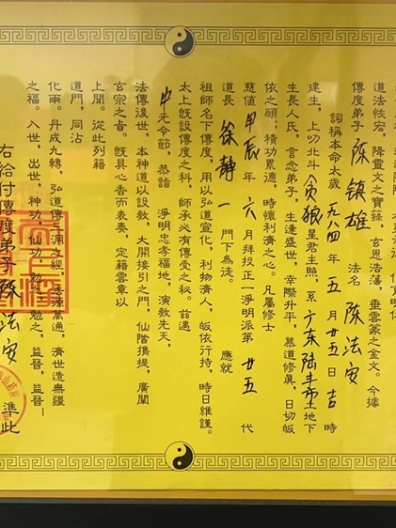 道法恢宏、降靈文之寶籙，玄恩浩蕩，垂雲篆之金文。今據
傳度弟子 陳鎮雄 法名 陳法安
詞稱本命太歲 一九八四年五月廿五日吉時
建生，上叨北斗 貪狼 星君主照，系 广东陆丰市 土地下
生長人氏，言念弟子，生逢盛世，幸際升平，慕道修真，日切皈
依之願；積功累德，時懷利濟之心。凡屬修士
慈值 甲辰 年 六 月拜投正一淨明派第 廿五 代
道長 徐靜一 門下為徒。 應就
祖師名下傳度，用以弘道宣化，利物濟人，皈依行持，時日維謹。
太上既設傳度之科，師承必有傳受之秘。茲遇
中元令節，恭詣 淨明忠孝福地，演教先天，
法傳後世。本神道以設教，大開接引之門，仙階攜提，廣闡
玄宗之音。既具心香而表奏，定籍雲章以
上聞。從此列籍
道門，同沾
化雨。丹成九轉，弘道傳
萬通，濟世造無疆
之福。入世，出世，神功，仙功，勉之，益晉，益晉！
右給付傳度弟子 陳法安 準此